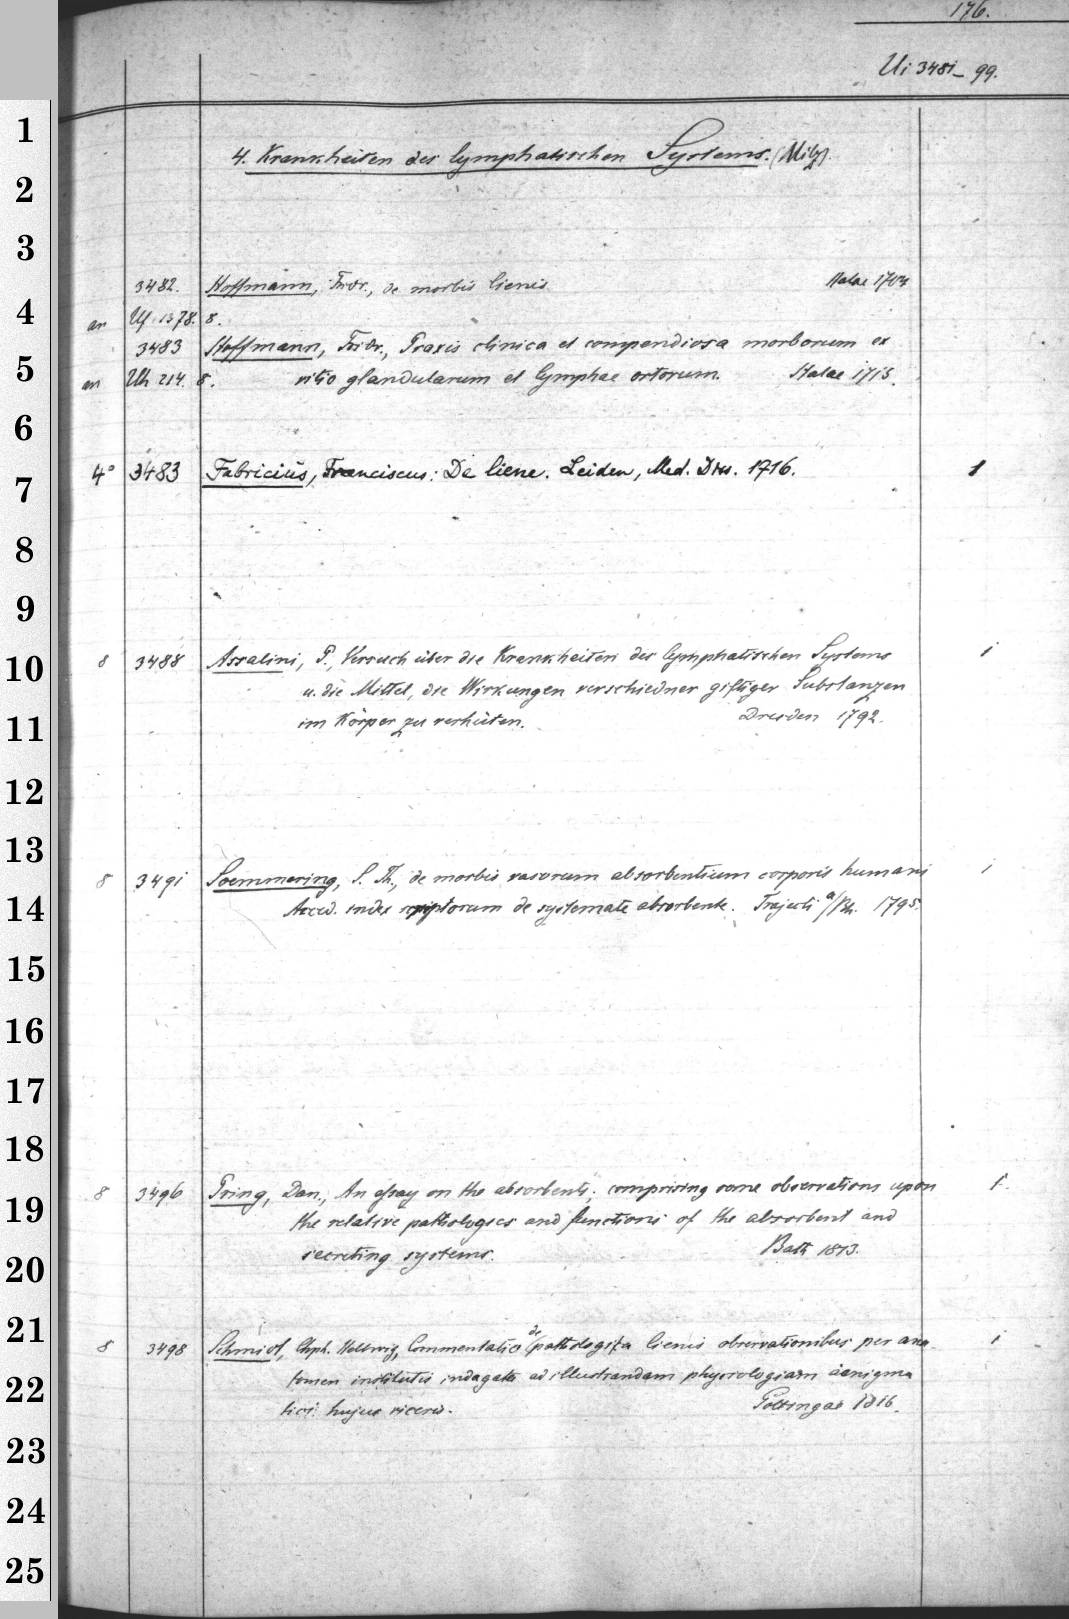 176.
Ui 3481-99.
1
4. Krankheiten des lymphatischen Systems. (Milz).
2
3
3482. Hoffmann, Fridr., de morbis lienis Halae 1704
4
an Uf 1378. 8.
3483 Hoffmann, Fridr., Praxis clinica et compendiosa morborum ex
5
an Uh 214. 8. vitio glandularum et lymphae ortorum. Halae 1715.
6
4° 3483 Fabricius, Franciscus: De liene. Leiden, Med. Diss. 1716. 1
7
8
9
8 3488 Assalini, P., Versuch über die Krankheiten des lymphatischen Systems 1
10
u. die Mittel, die Wirkungen verschiedner giftiger Substanzen
im Körper zu verhüten. Dresden 1792.
11
12
13
8 3491 Soemmering, S. Th., de morbis vasorum absorbentium corporis humani 1
14
Acced. index scriptorum de systemate absorbente. Trajecti a/Rh. 1795.
15
16
17
18
8 3496 Pring, Dan., An essay on the absorbents; comprising some observations upon 1
19
the relative pathologies and functions of the absorbent and
secreting systems. Bath 1813.
20
21
8 3498 Schmidt, Chph. Hellwig, Commentatio de pathologia lienis observationibus per ana 1
tomen institutis indagata ad illustrandam physiologiam aenigma
22
tici hujus visceris. Göttingae 1816.
23
24
25